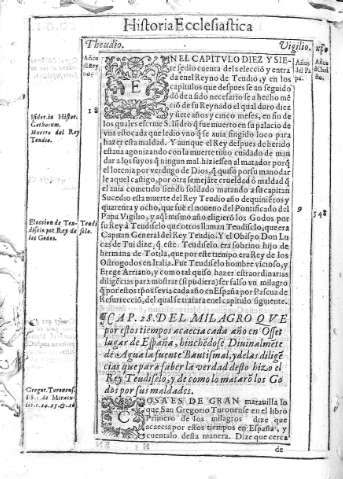 Historia Ecclesiastica
Theudio.
Vigilio.
Años del Rey
Años del Papa.
Años de
EN EL CAPITVLO DIEZ Y SIE-
te se dio cuenta de la eleció y entra
da en el Reyno de Teudio, y en los
capitulos que despues se an seguido
dó de a sido necessario se a hecho mé
ció de su Reynado el qual duro diez
y siete años y cinco meses, en fin de
los quales escriue S. Isidro q̃ fue muerto en su palacio de
vna estocada que le dio vno q̃ se auia fingido loco para
hazer esta maldad. Y aunque el Rey despues de herido
estaua agonizando con la muerte tuuo cuidado de man
dar a los suyos q̃ ningun mal hiziessen al matador porq̃
el lo tenia por verdigo de Dios, q̃ quiso por su mano dar
le aquel castigo, por otra semejate crueldad ó maldad q̃
el auia cometido siendo soldado matando a su capitan
Sucedio esta muerte del Rey Teudio año de quinientos y
quarenta y ocho, que fue el noueno del Pontificado del
Papa Virgilio, y aq̃l mismo año eligieró los Godos por
su Rey á Teudiselo que otros llaman Teudisclo, que era
Capitan General del Rey Teudio. Y el Obispo Don Lu
cas de Tui dize, q̃ este Teudiselo era sobrino hijo de
hermana de Totila, que por este tiempo era Rey de los
Ostrogodos en Italia. Fue Teudiselo hombre vicioso, y
Erege Arriano, y como tal quiso hazer estraordinarias
diligẽcias para mostrar (si pudiera) ser falso vn milagro
q̃ por estos tiẽpos se via cada año en España por Pascua de
Resurrecció, del qual se tratara en el capitulo siguiente.
18
9
548
Isidor. in Histor.
Gothorum.
Muerte del Rey
Teudio.
Eleccion de Teu-
diselo por Rey de
los Godos.
Teudi
selo
¶CAP. 28. DEL MILAGRO QVE
por estos tiempos acaecia cada año en Osset
lugar de España, hinchédose Diuinalmete
de Agua la fuente Bautismal, y de las diligé
cias que para saber la verdad desto hizo el
Rey Teudiselo, y de como lo mataró los Go
dos por sus maldades.
Gregor. Turonens.
COSA ES DE GRAN marauilla lo
que San Gregorio Turonense en el libro
Primero de los milagros dize que
acaecia por estos tiempos en España, y
cuentalo desta manera. Dize que cerca
de